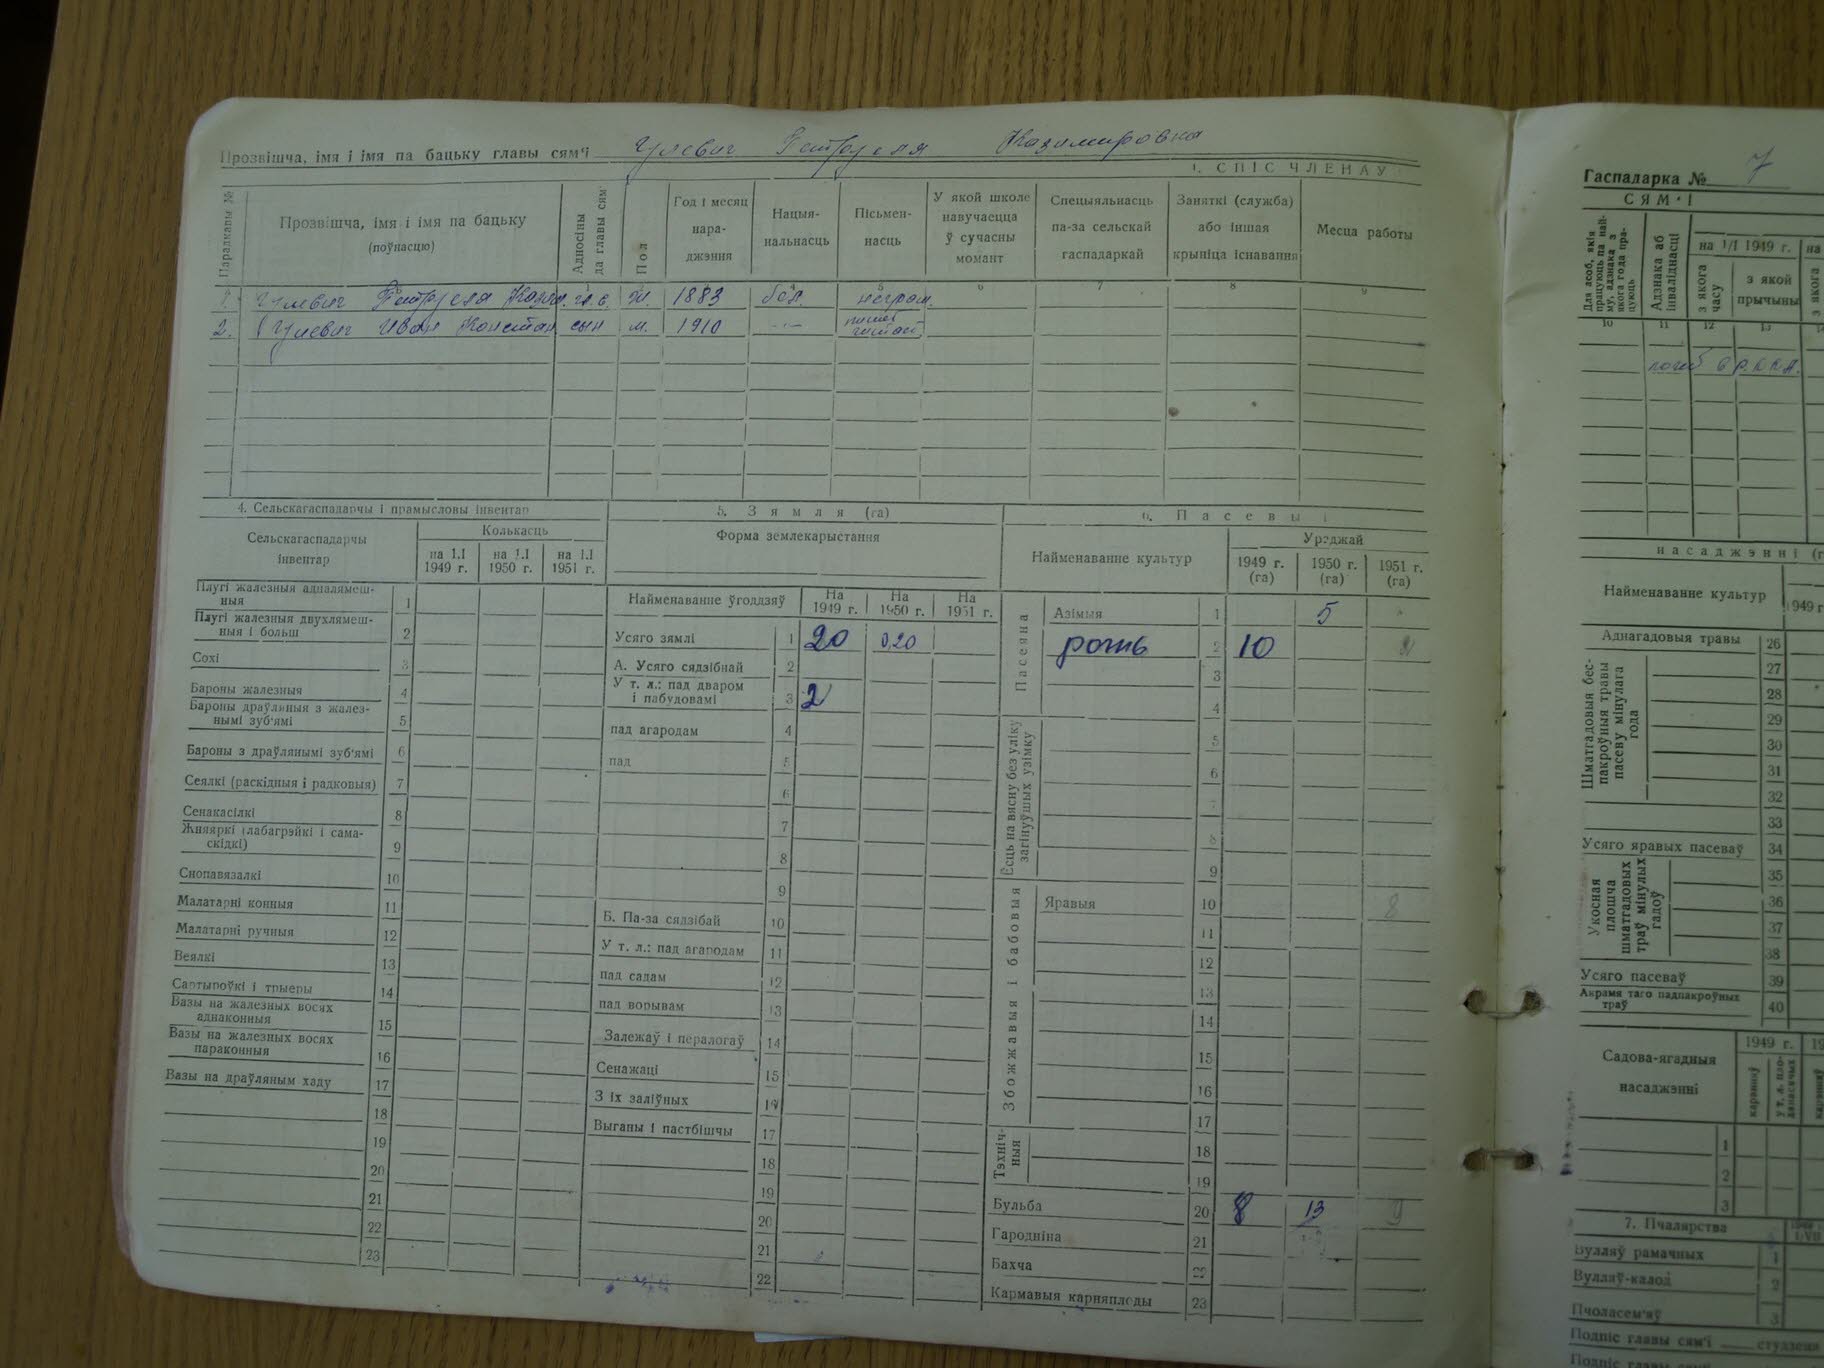 Прозвішча, імя і імя па бацьку главы сям'і Гулевич Казимировна
1. СПІС ЧЛЕНАЎ
Парадкавы №
Прозвішча, імя і імя па бацьку (поўнасцю)
Адносіны да главы сям'і
Пол
Год і месяц нараджэння
Нацыянальнасць
Пісьменнасць
У якой школе навучаецца ў сучасны момант
Спецыяльнасць па-за сельскай гаспадаркай
Заняткі (служба) або іншая крыніца існавання
Месца работы
1. Гулевич Казим. г.с. ж. 1883 бел. неграм.
2. Гулевич Иван Констан сын м. 1910 —"—
4. Сельскагаспадарчы і прамысловы інвентар
Сельскагаспадарчы інвентар
Колькасць
на 1.I 1949 г. на 1.I 1950 г. на 1.I 1951 г.
Плугі жалезныя адналямешныя 1
Плугі жалезныя двухлямешныя і больш 2
Сохі 3
Бароны жалезныя 4
Бароны драўляныя з жалезнымі зуб'ямі 5
Бароны з драўлянымі зуб'ямі 6
Сеялкі (раскідныя і радковыя) 7
Сенакасілкі 8
Жняяркі (лабагрэйкі і самаскідкі) 9
Снопавязалкі 10
Малатарні конныя 11
Малатарні ручныя 12
Веялкі 13
Сартыроўкі і трыеры 14
Вазы на жалезных восях аднаконныя 15
Вазы на жалезных восях параконныя 16
Вазы на драўляным хаду 17
18
19
20
21
22
23
5. Зямля (га)
Форма землекарыстання
Найменаванне ўгоддзяў На 1949 г. На 1950 г. На 1951 г.
Усяго зямлі 1 20 0,20
А. Усяго сядзібнай 2
У т. л.: пад дваром і пабудовамі 3 2
пад агародам 4
пад 5
6
7
8
9
Б. Па-за сядзібай 10
У т. л.: пад агародам 11
пад садам 12
пад ворывам 13
Залежаў і пералогаў 14
Сенажаці 15
З іх заліўных 16
Выганы і пастбішчы 17
18
19
20
21
22
6. Пасевы і
Найменаванне культур
Ураджай
1949 г. (га) 1950 г. (га) 1951 г. (га)
Пасеяна
Азімыя 1 5
рожь 2 10
3
4
Ёсць на вясну без уліку загінуўшых узімку
5
6
7
8
9
Збожжавыя і бабовыя
Яравыя 10 8
11
12
13
14
15
16
17
Тэхнічныя
18
19
Бульба 20 8 13 9
Гародніна 21
Бахча 22
Кармавыя карняплоды 23
Гаспадарка № 7
СЯМ'І
Для асоб, якія працуюць па найму, адзнака з якога года працуюць
Адзнака аб інваліднасці
на 1/I 1949 г. на
з якога часу
з якой прычыны
з якога
10 11 12 13 14
погиб в Р.К.К.А.
насаджэнні (г
Найменаванне культур
1949 г
Аднагадовыя травы 26
Шматгадовыя беспакроўныя травы пасеву мінулага года
27
28
29
30
31
32
33
Усяго яравых пасеваў 34
Укосная плошча шматгадовых траў мінулых гадоў
35
36
37
38
Усяго пасеваў 39
Акрамя таго падпакроўных траў 40
Садова-ягадныя насаджэнні
1949 г. 19
1
2
3
7. Пчалярства
Вулляў рамачных 1
Вулляў-калод 2
Пчоласем'яў 3
Подпіс главы сям'і студзеня